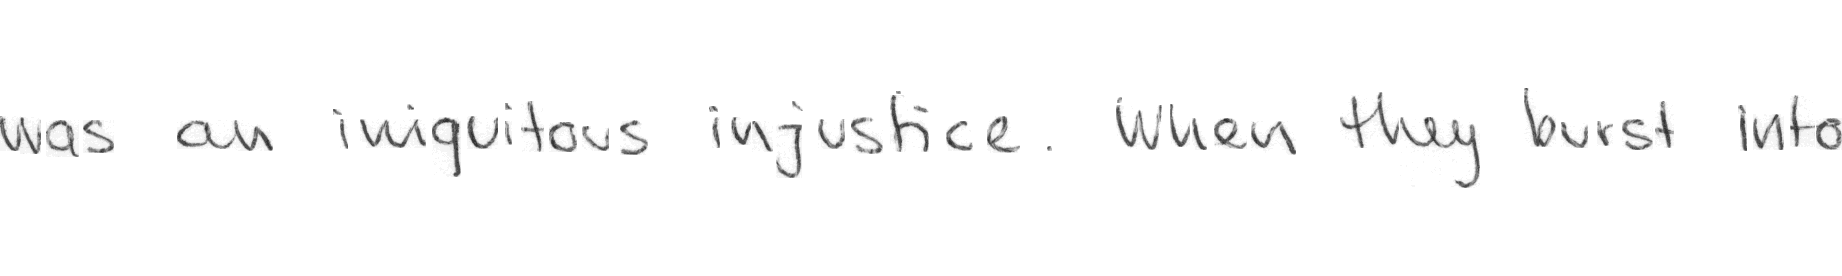 was an iniquitous injustice. When they burst into